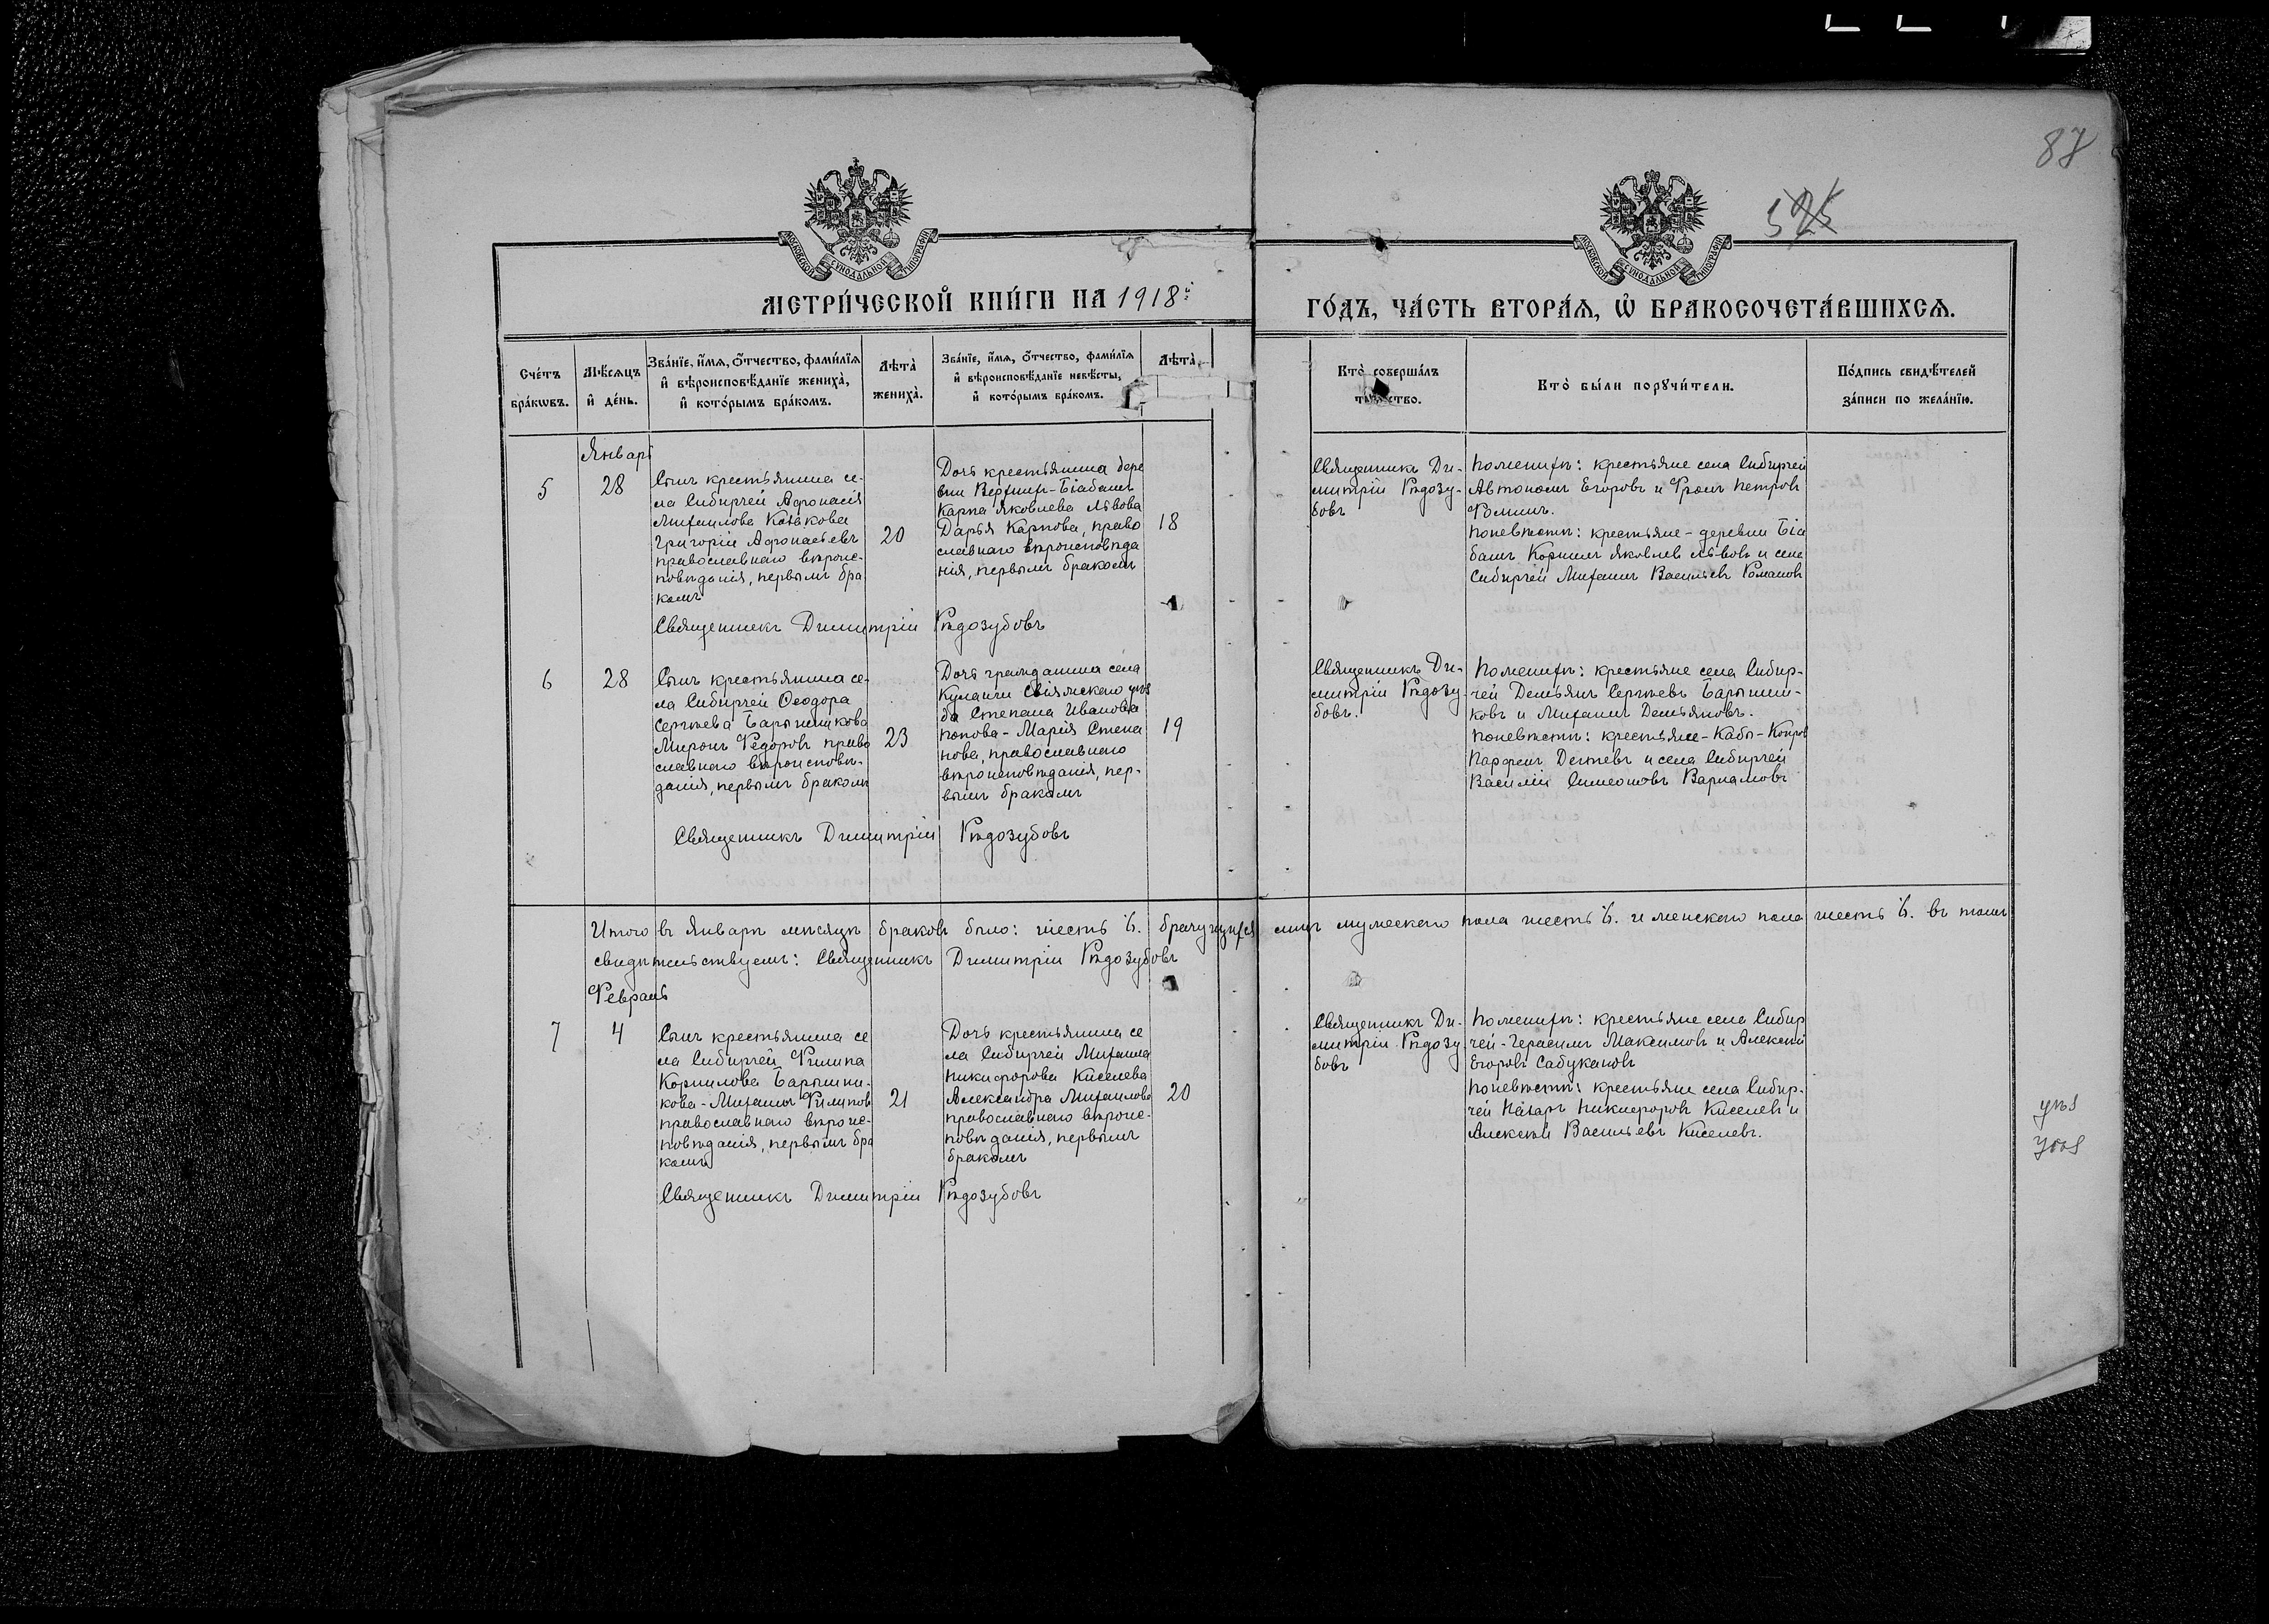 87
525
МОСКОВСКОЙ СѴНОДАЛЬНОЙ ТИПОГРАФІИ
МОСКОВСКОЙ СѴНОДАЛЬНОЙ ТИПОГРАФІИ
МЕТРИ́ЧЕСКОЙ КНИ́ГИ НА 1918й
ГО́ДЪ, ЧА́СТЬ ВТОРА́Я, Ѡ҆ БРАКОСОЧЕТА́ВШИХСЯ.
Сче́тъ
бра́кѡвъ.
Мѣ́сяцъ
и҆ де́нь.
Зва́нїе, и҆́мя, ѻ҆́тчество, фами́лїя
и҆ вѣроисповѣ́данїе жениха̀,
и҆ кото́рымъ бра́комъ.
Лѣта̀
жениха̀.
Зва́нїе, и҆́мя, ѻ҆́тчество, фами́лїя
и҆ вѣроисповѣ́данїе невѣ́сты,
и҆ кото́рымъ бра́комъ.
Лѣта̀
Кто̀ соверша́лъ
та́ ство.
Кто̀ бы́ли порꙋчи́тели.
По́дпись свидѣ́телей
за́писи по жела́нїю.
Январь
5
28
Сынъ крестьянина се-
ла Сибирчей Афонасія
Михаилова Казакова
Григорій Афонасьевъ
православнаго вѣроис-
повѣданія, первымъ бра
комъ
20
Дочь крестьянина дере
вни Верхнихъ-Біабашъ
Карпа Яковлева Львова
Дарья Карпова, право
славнаго вѣроисповѣда
нія, первымъ бракомъ
18
Священникъ Ди-
митрій Рѣдозу-
бовъ
По женихѣ: крестьяне села Сибирчей
Автономъ Егоровъ и Фролъ Петровъ
Фоминъ.
По невѣстѣ: крестьяне - деревни Біа
башъ Корнилъ Яковлев Львовъ и села
Сибирчей Михаилъ Васильевъ Романовъ
Священникъ Димитрій Рѣдозубовъ
6
28
Сынъ крестьянина се-
ла Сибирчей Ѳеодора
Сергѣева Барышникова
Миронъ Федоровъ право
славнаго вѣроисповѣ-
данія, первымъ бракомъ
23
Дочь гражданина села
Куланги Свіяжскаго уѣз
да Степана Иванова
Попова - Марія Степа
нова, православнаго
вѣроисповѣданія, пер-
вымъ бракомъ
19
Священникъ Ди-
митрій Рѣдозу-
бовъ.
По женихѣ: крестьяне села Сибир-
чей Демьянъ Сергѣевъ Барышни-
ковъ и Михаилъ Демьяновъ.
По невѣстѣ: крестьяне - Кабы-Копров
Парфенъ и села Сибирчей
Василій Симеоновъ Варламовъ
Священникъ Димитрій Рѣдозубовъ
Итого въ Январѣ мѣсяцѣ браковъ было: шесть 6. брачущихся лицъ мужескаго пола шесть 6. и женскаго пола шесть 6. въ томъ
свидѣтельствуемъ: Священникъ Димитрій Рѣдозубовъ
Февраль
7
4
Сынъ крестьянина се
ла Сибирчей Филипа
Корнилова Барышни-
кова - Михаилъ Филипов
православнаго вѣроис-
повѣданія, первымъ бра
комъ
21
Дочь крестьянина се
ла Сибирчей Михаила
Никифорова Киселева
Александра Михаилова
православнаго вѣроис-
повѣданія, первымъ
бракомъ
20
Священникъ Ди-
митрій Рѣдозу
бовъ
По женихѣ: крестьяне села Сибир
чей - Герасимъ Максимовъ и Алексѣй
Егоровъ Сабукановъ
По невѣстѣ: крестьяне села Сибир-
чей Назаръ Никифоровъ Киселевъ и
Алексѣй Васильевъ Киселевъ.
Священникъ Димитрій Рѣдозубовъ